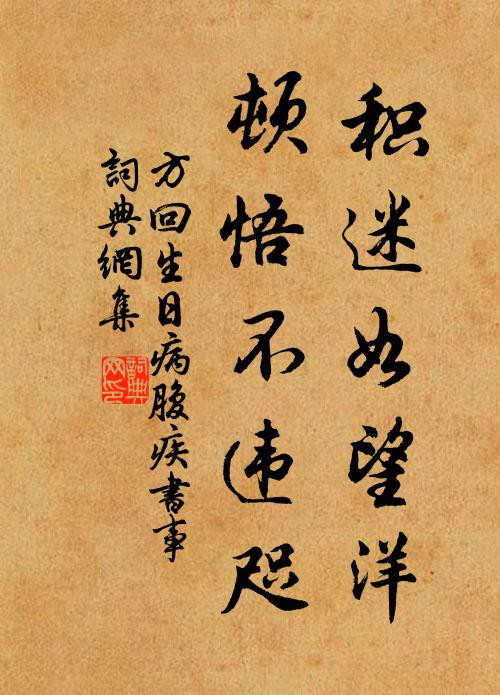 积迷如望洋
顿悟不违咫
方回生日病腹疾书事
詞典網集
詞典网印